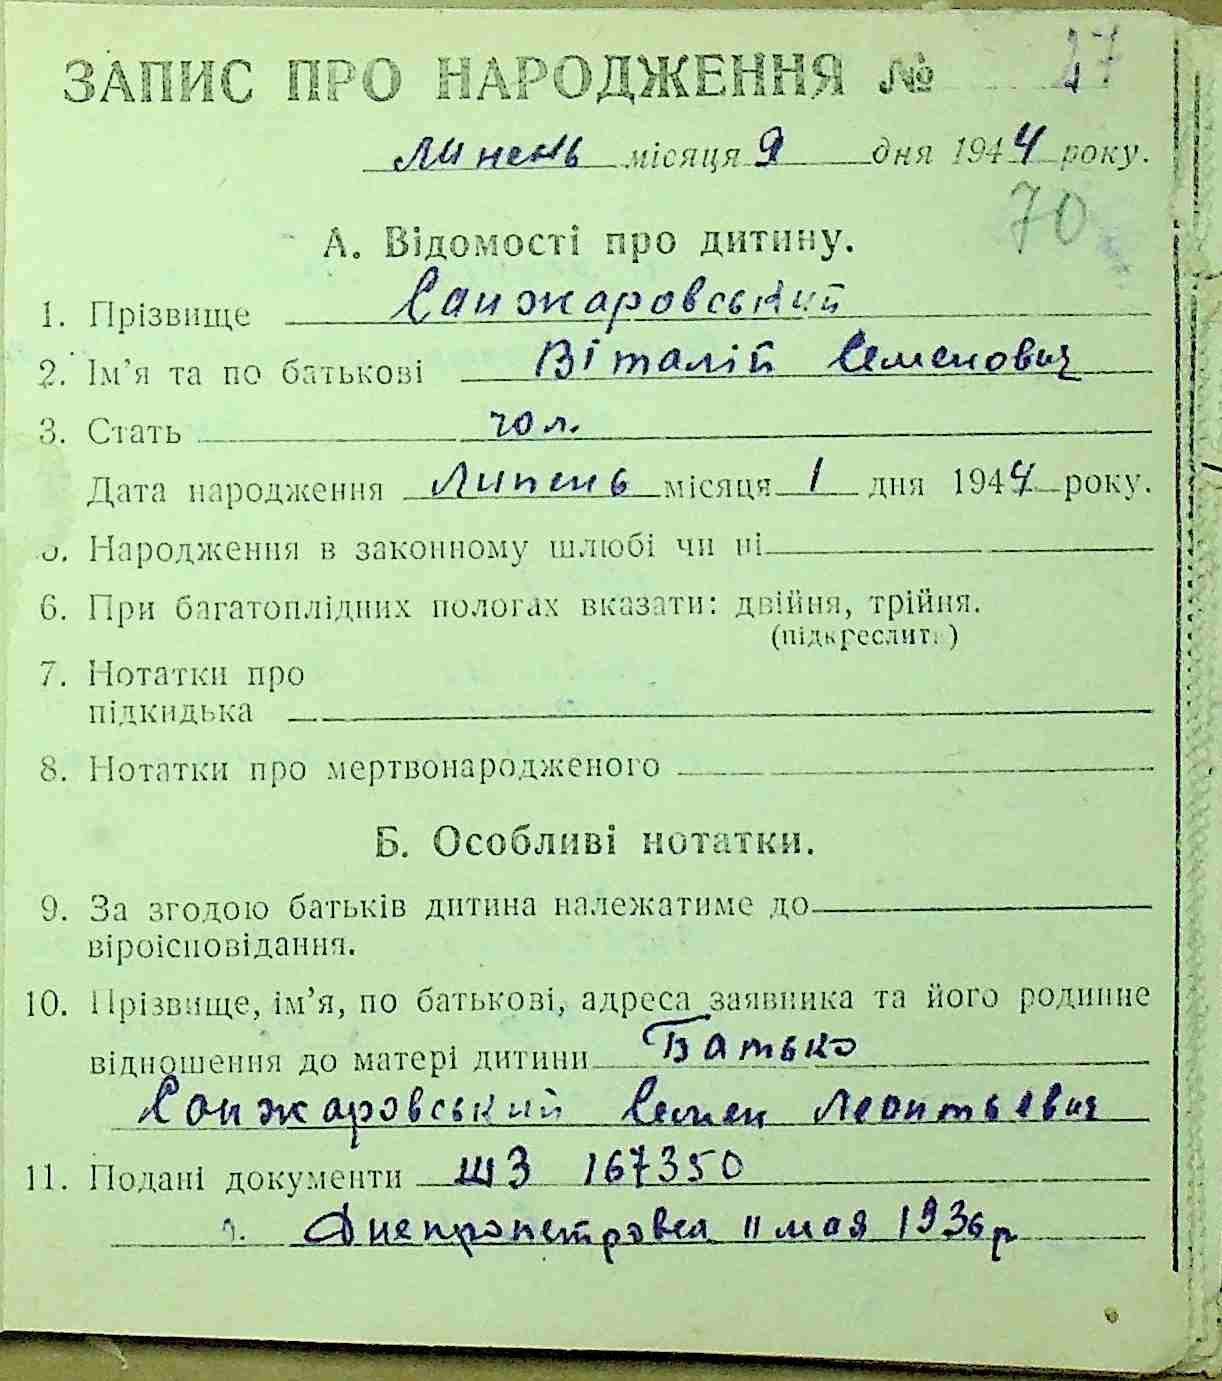 ЗАПИС ПРО НАРОДЖЕННЯ № 27
липень місяця 9 дня 1944 року.
70
А. Відомості про дитину.
1. Прізвище Санжаровський
2. Ім'я та по батькові Віталій Семенович
3. Стать чол.
Дата народження Липень місяця 1 дня 1944 року.
5. Народження в законному шлюбі чи ні
6. При багатоплідних пологах вказати: двійня, трійня.
(підкреслить)
7. Нотатки про
підкидька
8. Нотатки про мертвонародженого
Б. Особливі нотатки.
9. За згодою батьків дитина належатиме до
віроісповідання.
10. Прізвище, ім'я, по батькові, адреса заявника та його родинне
відношення до матері дитини Батько
Санжаровський Семен Леонтьевич
11. Подані документи ШЗ 167350
г. Днепропетровск 11 мая 1936 р